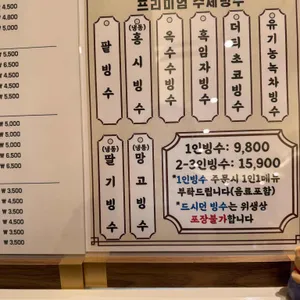 프리미엄 수제빙수
팥빙수
(냉동)홍시빙수
옥수수빙수
흑임자빙수
더리치초코빙수
유기농녹차빙수
(냉동)딸기빙수
(냉동)망고빙수
1인빙수: 9,800
2-3인빙수: 15,900
*1인빙수 주문시 1인1메뉴
부탁드립니다(음료포함)
*드시던 빙수는 위생상
포장불가합니다
₩ 4,500
₩ 4,500
₩ 5,500
₩ 5.500
₩ 4.500
₩ 4.500
₩ 4.500
₩ 5.500
₩ 5.000
₩ 5.000
₩ 6.000
₩ 6.500
₩ 6.500
₩ 3,500
₩ 3,500
₩ 4,500
₩ 3,500
₩ 3,500